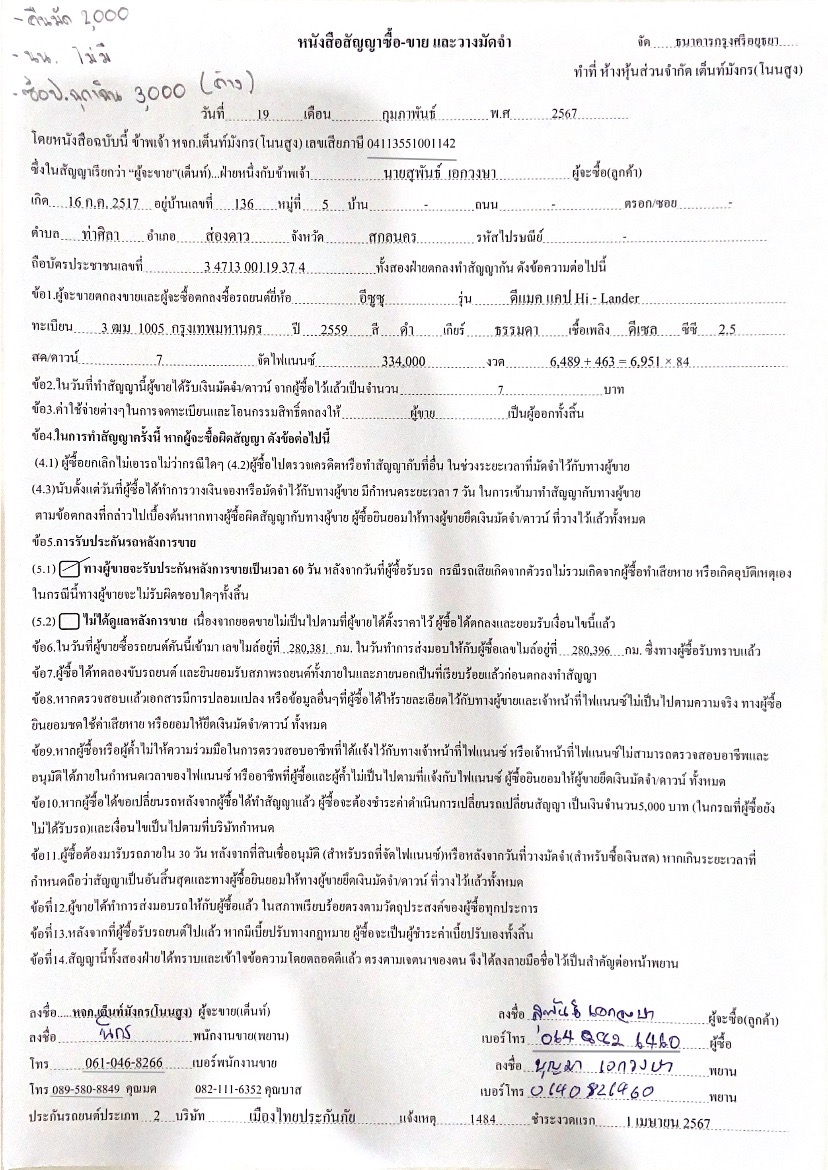 - คืนมัด 2,000
- นน. ไม่มี
- ซื้อป.ฉุกเฉิน 3,000 (ค้าง)
หนังสือสัญญาซื้อ-ขาย และวางมัดจำ
จัด ธนาคารกรุงศรีอยุธยา
ทำที่ ห้างหุ้นส่วนจำกัด เต็นท์มังกร(โนนสูง)
วันที่ 19 เดือน กุมภาพันธ์ พ.ศ 2567
โดยหนังสือฉบับนี้ ข้าพเจ้า หจก.เต็นท์มังกร(โนนสูง) เลขเสียภาษี 04113551001142
ซึ่งในสัญญาเรียกว่า “ผู้จะขาย”(เต็นท์)...ฝ่ายหนึ่งกับข้าพเจ้า นายสุพันธ์ เอกวงษา ผู้จะซื้อ(ลูกค้า)
เกิด 16 ก.ค. 2517 อยู่บ้านเลขที่ 136 หมู่ที่ 5 บ้าน - ถนน - ตรอก/ซอย -
ตำบล ท่าศิลา อำเภอ ส่องดาว จังหวัด สกลนคร รหัสไปรษณีย์ -
ถือบัตรประชาชนเลขที่ 3 4713 00119 37 4 ทั้งสองฝ่ายตกลงทำสัญญากัน ดังข้อความต่อไปนี้
ข้อ1.ผู้จะขายตกลงขายและผู้จะซื้อตกลงซื้อรถยนต์ยี่ห้อ อีซูซุ รุ่น ดีแมค แคป Hi - Lander
ทะเบียน 3 ฒฆ 1005 กรุงเทพมหานคร ปี 2559 สี ดำ เกียร์ ธรรมดา เชื้อเพลิง ดีเซล ซีซี 2.5
สด/ดาวน์ 7 จัดไฟแนนซ์ 334,000 งวด 6,489 + 463 = 6,951 × 84
ข้อ2.ในวันที่ทำสัญญานี้ผู้ขายได้รับเงินมัดจำ/ดาวน์ จากผู้ซื้อไว้แล้วเป็นจำนวน 7 บาท
ข้อ3.ค่าใช้จ่ายต่างๆในการจดทะเบียนและโอนกรรมสิทธิ์ตกลงให้ ผู้ขาย เป็นผู้ออกทั้งสิ้น
ข้อ4.ในการทำสัญญาครั้งนี้ หากผู้จะซื้อผิดสัญญา ดังข้อต่อไปนี้
(4.1) ผู้ซื้อยกเลิกไม่เอารถไม่ว่ากรณีใดๆ (4.2)ผู้ซื้อไปตรวจเครดิตหรือทำสัญญากับที่อื่น ในช่วงระยะเวลาที่มัดจำไว้กับทางผู้ขาย
(4.3)นับตั้งแต่วันที่ผู้ซื้อได้ทำการวางเงินจองหรือมัดจำไว้กับทางผู้ขาย มีกำหนดระยะเวลา 7 วัน ในการเข้ามาทำสัญญากับทางผู้ขาย
ตามข้อตกลงที่กล่าวไปเบื้องต้นหากทางผู้ซื้อผิดสัญญากับทางผู้ขาย ผู้ซื้อยินยอมให้ทางผู้ขายยึดเงินมัดจำ/ดาวน์ ที่วางไว้แล้วทั้งหมด
ข้อ5.การรับประกันรถหลังการขาย
(5.1) ทางผู้ขายจะรับประกันหลังการขายเป็นเวลา 60 วัน หลังจากวันที่ผู้ซื้อรับรถ กรณีรถเสียเกิดจากตัวรถไม่รวมเกิดจากผู้ซื้อทำเสียหาย หรือเกิดอุบัติเหตุเอง
ในกรณีนี้ทางผู้ขายจะไม่รับผิดชอบใดๆทั้งสิ้น
(5.2) ไม่ได้ดูแลหลังการขาย เนื่องจากยอดขายไม่เป็นไปตามที่ผู้ขายได้ตั้งราคาไว้ ผู้ซื้อได้ตกลงและยอมรับเงื่อนไขนี้แล้ว
ข้อ6.ในวันที่ผู้ขายซื้อรถยนต์คันนี้เข้ามา เลขไมล์อยู่ที่ 280,381 กม. ในวันทำการส่งมอบให้กับผู้ซื้อเลขไมล์อยู่ที่ 280,396 กม. ซึ่งทางผู้ซื้อรับทราบแล้ว
ข้อ7.ผู้ซื้อได้ทดลองขับรถยนต์ และยินยอมรับสภาพรถยนต์ทั้งภายในและภายนอกเป็นที่เรียบร้อยแล้วก่อนตกลงทำสัญญา
ข้อ8.หากตรวจสอบแล้วเอกสารมีการปลอมแปลง หรือข้อมูลอื่นๆที่ผู้ซื้อได้ให้รายละเอียดไว้กับทางผู้ขายและเจ้าหน้าที่ไฟแนนซ์ไม่เป็นไปตามความจริง ทางผู้ซื้อ
ยินยอมชดใช้ค่าเสียหาย หรือยอมให้ยึดเงินมัดจำ/ดาวน์ ทั้งหมด
ข้อ9.หากผู้ซื้อหรือผู้ค้ำไม่ให้ความร่วมมือในการตรวจสอบอาชีพที่ได้แจ้งไว้กับทางเจ้าหน้าที่ไฟแนนซ์ หรือเจ้าหน้าที่ไฟแนนซ์ไม่สามารถตรวจสอบอาชีพและ
อนุมัติได้ภายในกำหนดเวลาของไฟแนนซ์ หรืออาชีพที่ผู้ซื้อและผู้ค้ำไม่เป็นไปตามที่แจ้งกับไฟแนนซ์ ผู้ซื้อยินยอมให้ผู้ขายยึดเงินมัดจำ/ดาวน์ ทั้งหมด
ข้อ10.หากผู้ซื้อได้ขอเปลี่ยนรถหลังจากผู้ซื้อได้ทำสัญญาแล้ว ผู้ซื้อจะต้องชำระค่าดำเนินการเปลี่ยนรถเปลี่ยนสัญญา เป็นเงินจำนวน5,000 บาท (ในกรณที่ผู้ซื้อยัง
ไม่ได้รับรถ)และเงื่อนไขเป็นไปตามที่บริษัทกำหนด
ข้อ11.ผู้ซื้อต้องมารับรถภายใน 30 วัน หลังจากที่สินเชื่ออนุมัติ (สำหรับรถที่จัดไฟแนนซ์)หรือหลังจากวันที่วางมัดจำ(สำหรับซื้อเงินสด) หากเกินระยะเวลาที่
กำหนดถือว่าสัญญาเป็นอันสิ้นสุดและทางผู้ซื้อยินยอมให้ทางผู้ขายยึดเงินมัดจำ/ดาวน์ ที่วางไว้แล้วทั้งหมด
ข้อที่12.ผู้ขายได้ทำการส่งมอบรถให้กับผู้ซื้อแล้ว ในสภาพเรียบร้อยตรงตามวัตถุประสงค์ของผู้ซื้อทุกประการ
ข้อที่13.หลังจากที่ผู้ซื้อรับรถยนต์ไปแล้ว หากมีเบี้ยปรับทางกฎหมาย ผู้ซื้อจะเป็นผู้ชำระค่าเบี้ยปรับเองทั้งสิ้น
ข้อที่14.สัญญานี้ทั้งสองฝ่ายได้ทราบและเข้าใจข้อความโดยตลอดดีแล้ว ตรงตามเจตนาของตน จึงได้ลงลายมือชื่อไว้เป็นสำคัญต่อหน้าพยาน
ลงชื่อ.....หจก.เต็นท์มังกร(โนนสูง) ผู้จะขาย(เต็นท์) ลงชื่อ สุพันธ์ เอกวงษา ผู้จะซื้อ(ลูกค้า)
ลงชื่อ พนักงานขาย(พยาน) เบอร์โทร ผู้ซื้อ
โทร 061-046-8266 เบอร์พนักงานขาย ลงชื่อ บุญมา เอกวงษา พยาน
โทร 089-580-8849 คุณมด 082-111-6352 คุณบาส เบอร์โทร พยาน
ประกันรถยนต์ประเภท 2 บริษัท เมืองไทยประกันภัย แจ้งเหตุ 1484 ชำระงวดแรก 1 เมษายน 2567